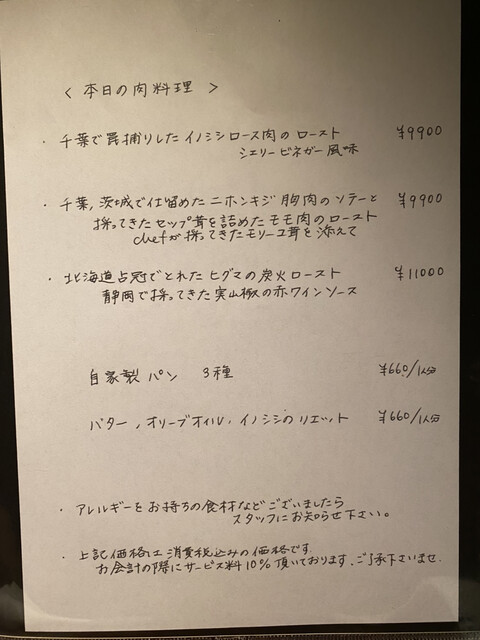 < 本日の肉料理 >
・千葉で罠捕りしたイノシシロース肉のロースト ¥9900
シェリービネガー風味
・千葉, 茨城で仕留めたニホンキジ胸肉のソテーと ¥9900
採ってきたセップ茸を詰めたモモ肉のロースト
chefが採ってきたモリーユ茸を添えて
・北海道占冠でとれたヒグマの炭火ロースト ¥11000
静岡で採ってきた実山椒の赤ワインソース
自家製パン 3種 ¥660/1人分
バター, オリーブオイル, イノシシのリエット ¥660/1人分
・アレルギーをお持ちの食材などございましたら
スタッフにお知らせ下さい。
・上記価格は消費税込みの価格です.
お会計の際にサービス料10%頂いております, ご了承下さいませ.